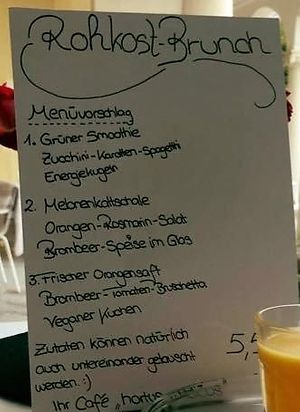 Rohkost-Brunch
Menüvorschlag
1. Grüner Smoothie
Zucchini-Karotten-Spagetti
Energiekugeln
2. Melonenkaltschale
Orangen-Rosmarin-Salat
Brombeer-Speise im Glas
3. Frischer Orangensaft
Brombeer-Tomaten-Bruschetta
Veganer Kuchen
Zutaten können natürlich
auch untereinander getauscht
werden. :)
Ihr Café „hortus